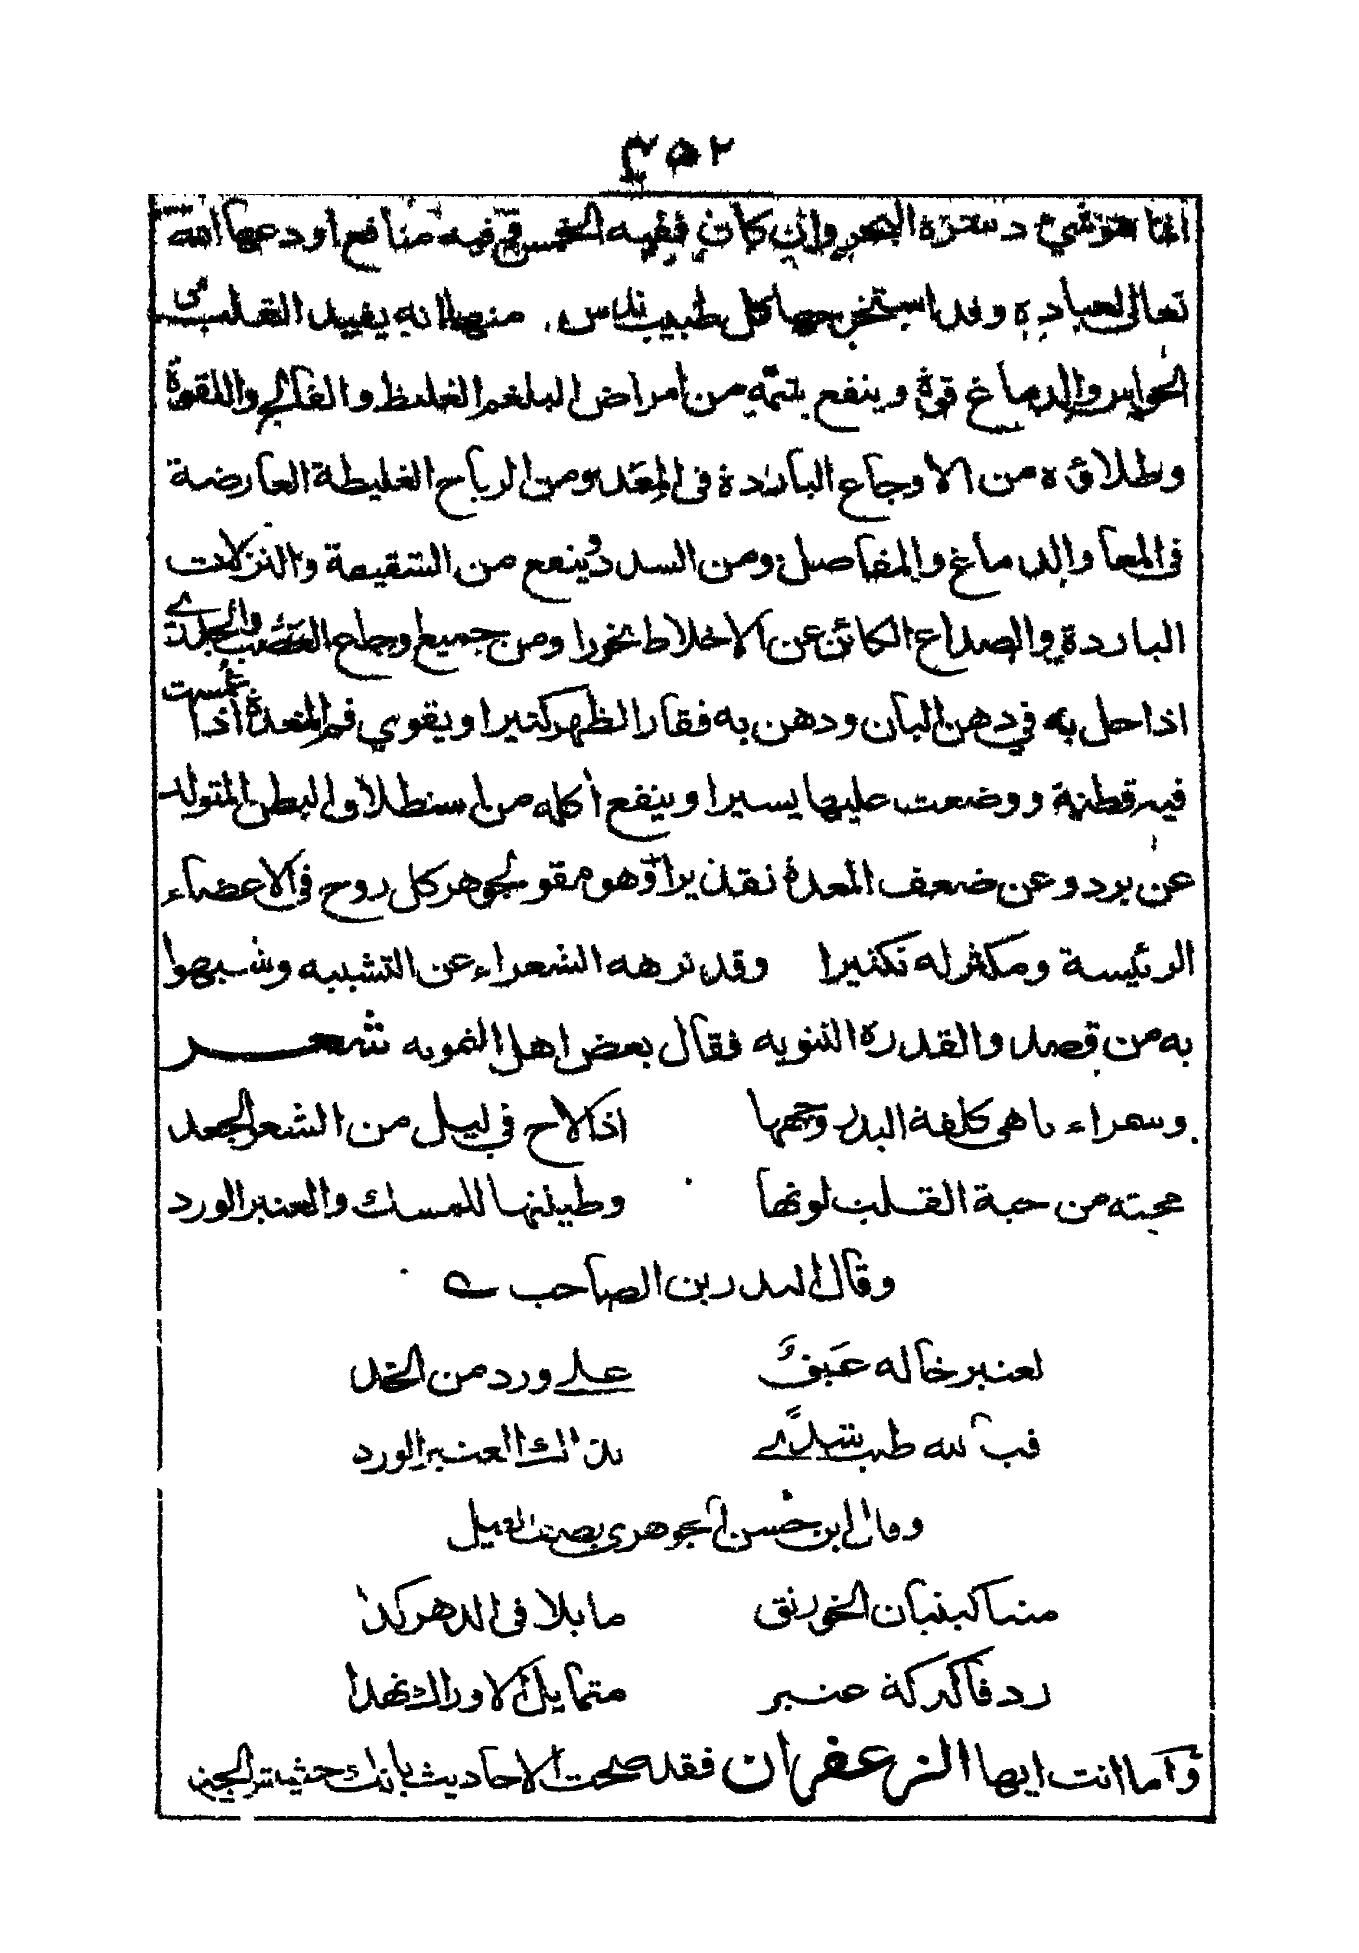 ٣٥٢
انما هو شيء دسره البحر وان كان ففيه الخمس قيمة منافع اودعها الله
تعالى لعباده وقد استخرجها كل طبيب ندس منها انه يفيد القلب
الحواس والدماغ قوة وينفع بشمه من امراض البلغم الغليظ والفالج واللقوة
وطلاؤه من الاوجاع الباردة في المعدة ومن الرياح الغليظة العارضة
في المعا والدماغ والمفاصل ومن السدد وينفع من الشقيقة والنزلات
الباردة والصداع الكائن عن الاخلاط بخورا ومن جميع اوجاع العصب والجلد
اذا حل به في دهن البان ودهن به فقار الظهر كثيرا ويقوي فم المعدة اذا غمست
فيه قطنة ووضعت عليها يسيرا وينفع اكله من استطلاق البطن المتولد
عن برد وعن ضعف المعدة تقديرا وهو مقو لجوهر كل روح في الاعضاء
الرئيسة ومكثر له تكثيرا وقد نزهه الشعراء عن التشبيه وشبهوا
به من قصد والقدرة التنويه فقال بعض اهل التمويه شعر
وسمراء باهى كلفة البدر وجهها اذا لاح في ليل من الشعر الجعد
محبته من حبة القلب لونها وطينتها للمسك والعنبر الورد
وقال البدر بن الصاحب
لعنبر خاله عبق على ورد من الخد
فب الله طب شذى بذاك العنبر الورد
وقال ابن حسن الجوهرى يصف الفيل
متنا كبنيان الخورنق ما بلا في الدهر كدا
ردفا كدكة عنبر متمايل الاوراك نهدا
واما انت ايها الزعفران فقد صحت الاحاديث بانك حشيش الجنة